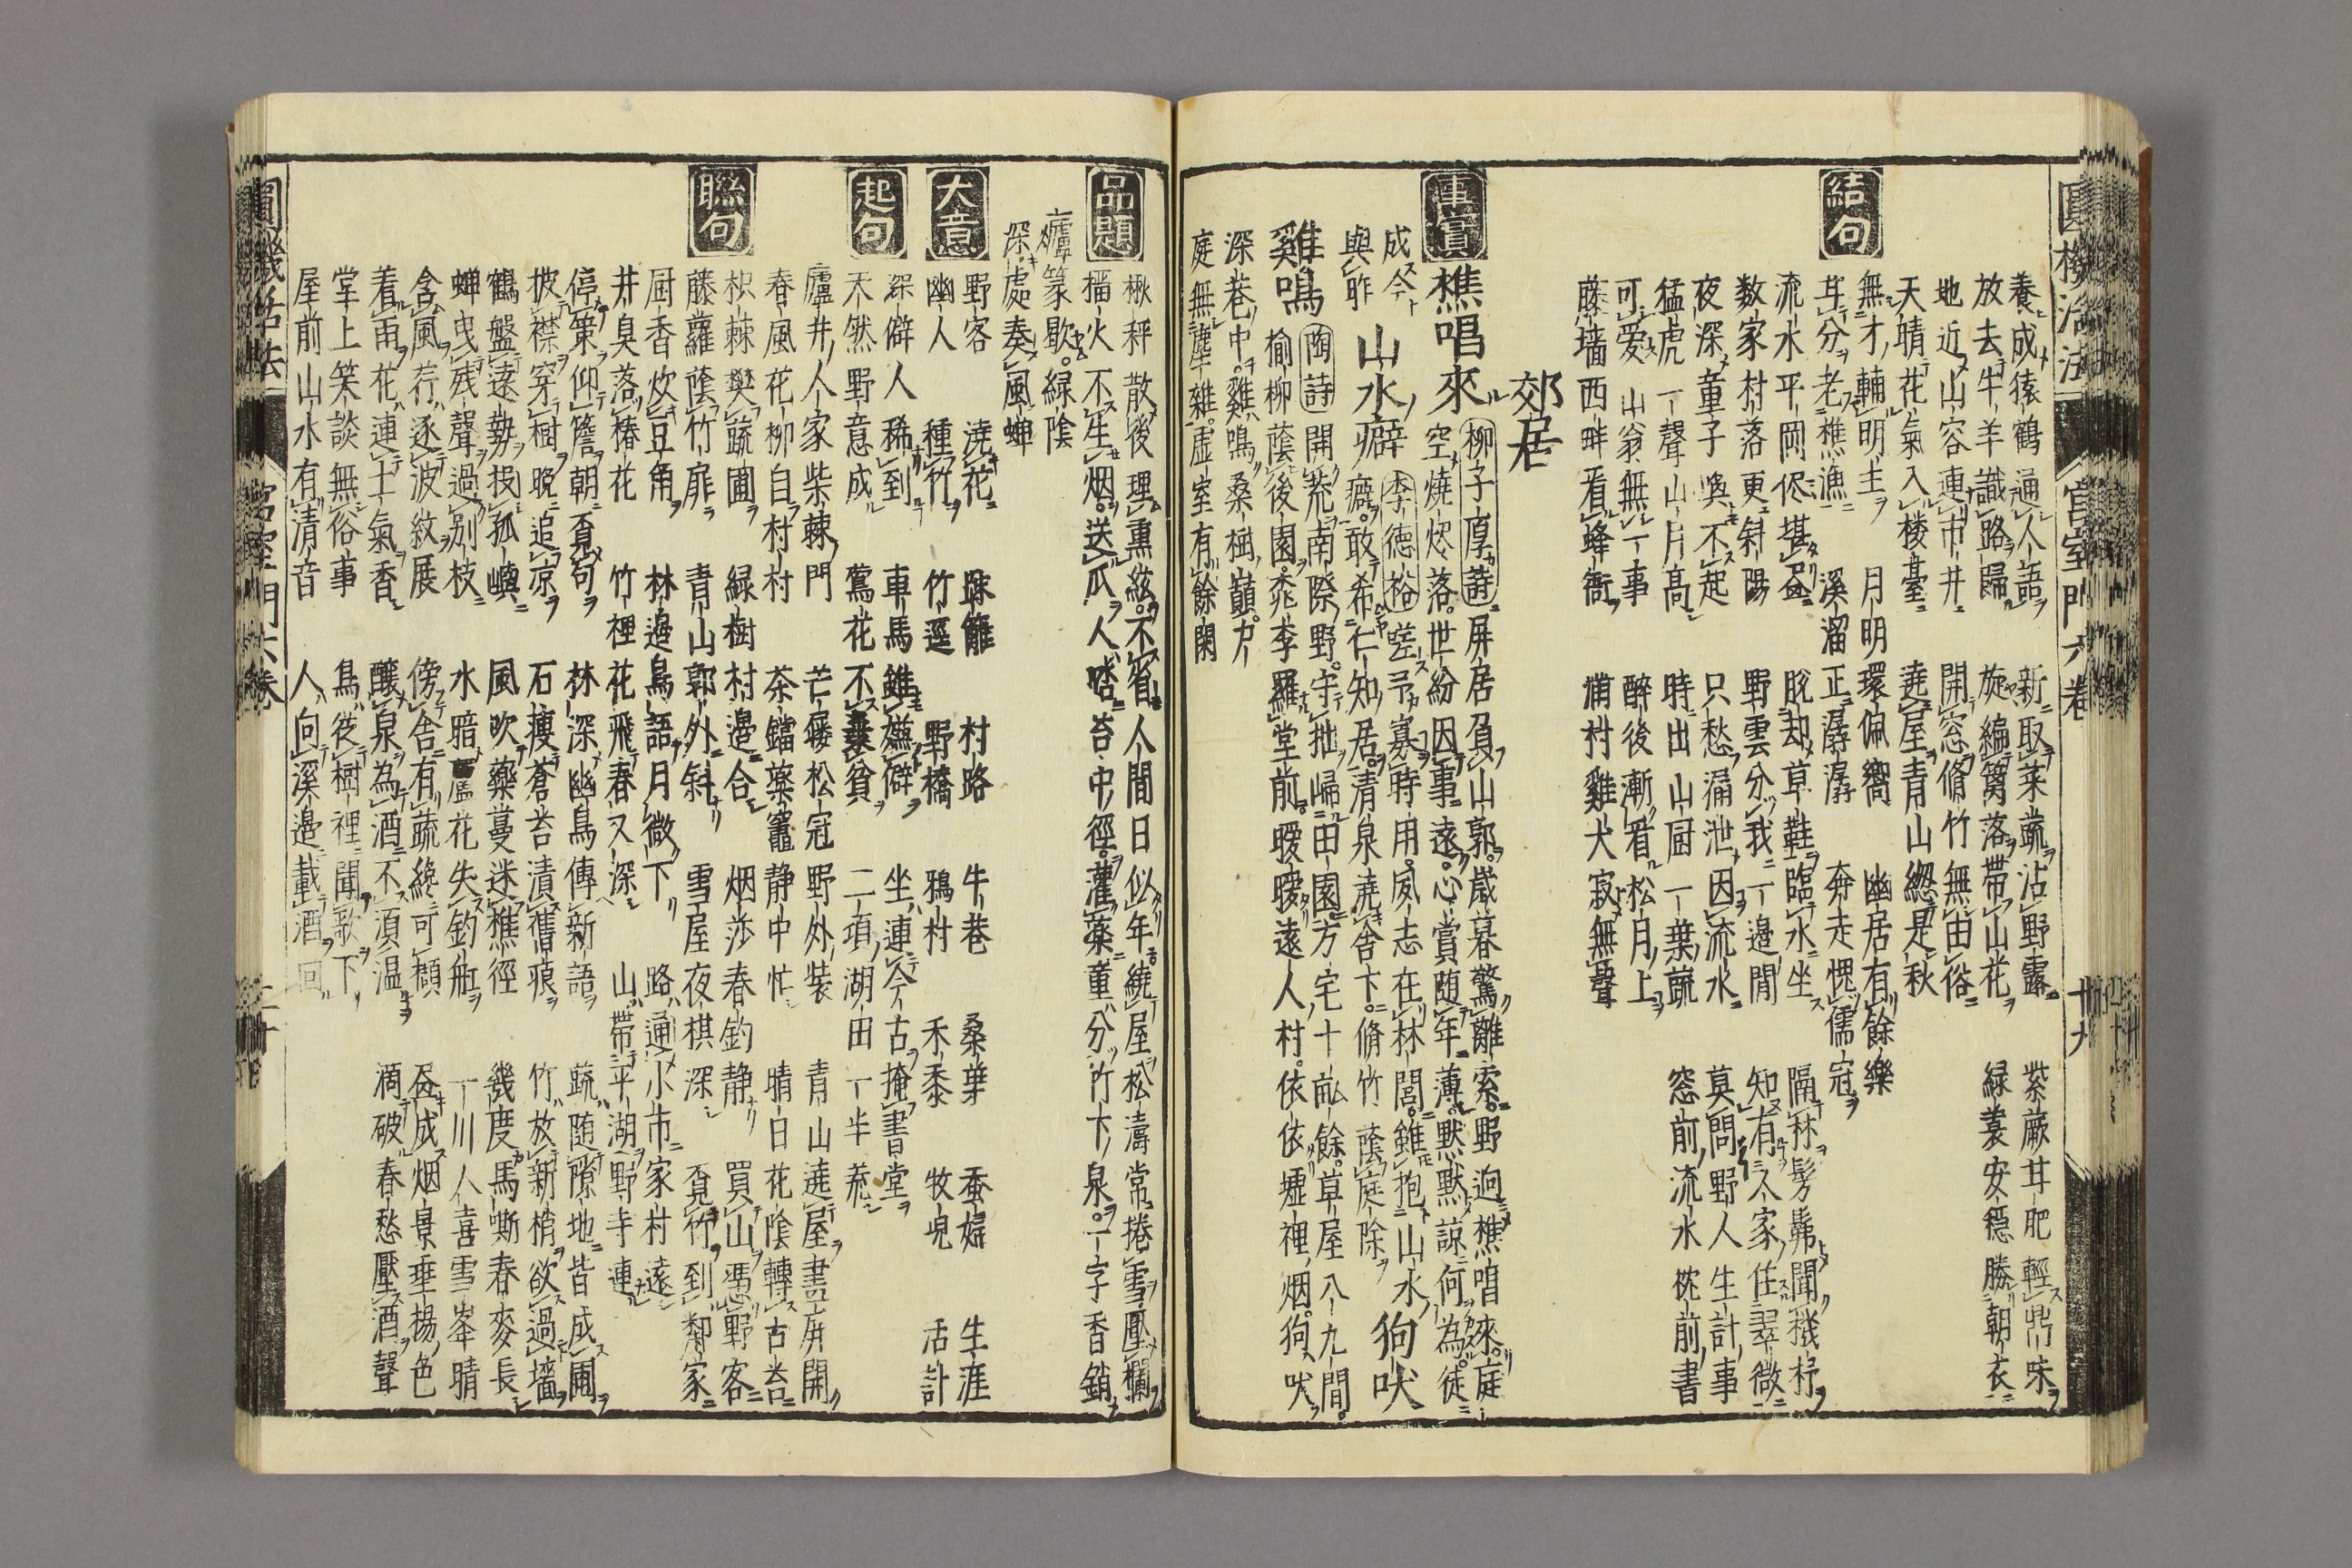 圓機活法
宮室門六卷
十九
養成猿鶴通人語　新取菜蔬沾野露　紫蕨甘肥輕鼎味
放去牛羊識路歸　旋編籬落帶山花　緑蓑安穩勝朝衣
地近山容連市井　開窓脩竹無由俗
天晴花氣入楼臺　遶屋青山總是秋
結句
無才輔明主　月明環佩嚮　幽居有餘樂
甘分老樵漁　溪溜正潺潺　奔走愧儒冠
流水平岡俱堪画　脱却草鞋臨水坐　隔林髣髴聞機杼
数家村落更斜陽　野雲分我一邊閒　知有人家住翠微
夜深童子喚不起　只愁漏泄因流水　莫問野人生計事
猛虎一聲山月高　時出山厨一葉蔬　窓前流水枕前書
可愛山翁無一事　醉後漸看松月上
藤墻西畔看蜂衙　浦村雞犬寂無聲
郊居
事實
樵唱來　柳子厚詩　屏居負山郭。歳暮驚離索。野迥樵唱來。庭
空燒燼落。世紛因事遠。心賞随年薄。默默諒何為。徒
成今與昨
山水癖　李德裕　嗟予寡時用。夙志在林閭。雖抱山水
癖。敢希仁知居。清泉遶舍下。脩竹蔭庭除。
狗吠雞鳴　陶詩　開荒南際野。守拙歸田園。方宅十畝餘。草屋八九間。
榆柳蔭後園。桃李羅堂前。曖曖遠人村。依依墟裡烟。狗吠
深巷中。雞鳴桑樹巔。戸
庭無塵雜。虛室有餘閑
品題
楸秤散後理熏絃。不省人間日似年。繞屋松濤常捲雪。壓欄
榴火不生烟。送瓜人喀苔中徑。灌藥童分竹下泉。一字香銷
爐篆歇。緑陰
深處奏風蟬
大意
野客　澆花　踈籬　村路　牛巷　桑葉　蚕婦　生涯
幽人　種竹　竹逕　野橋　鴉村　禾黍　牧兒　活計
起句
深僻人稀到　車馬雖嫌僻　坐連今古掩書堂
天然野意成　鶯花不棄貧　二頃湖田一半荒
聯句
廬井人家柴棘門　芒屨松冠野外裝　青山遶屋畫屏開
春風花柳自村村　茶鐺藥竈静中忙　晴日花陰轉古苔
枳棘樊蔬圃　緑樹村邊合　烟莎春釣静　買山憑野客
藤蘿蔭竹扉　青山郭外斜　雪屋夜棋深　覓竹到鄰家
厨香炊豆角　林邉鳥語月微下　路通小市家村遠
井臭落椿花　竹裡花飛春又深　山帶平湖野寺連
停策仰簷朝覓句　林深幽鳥傳新語　蔬随隙地皆成圃
披襟穿樹晩追凉　石痩蒼苔漬舊痕　竹放新梢欲過墻
鶴盤遠勢投孤嶼　風吹藥蔓迷樵徑　幾度馬嘶春麥長
蟬曳残聲過別枝　水暗蘆花失釣舡　一川人喜雪峯晴
含風荇逐波紋展　傍舍有蔬纔可擷　画成烟景垂楊色
着雨花連土氣香　釀泉為酒不須温　滴破春愁壓酒聲
掌上笑談無俗事　鳥從樹裡聞歌下
屋前山水有清音　人向溪邉載酒回
圓機活法
宮室門六卷
二十